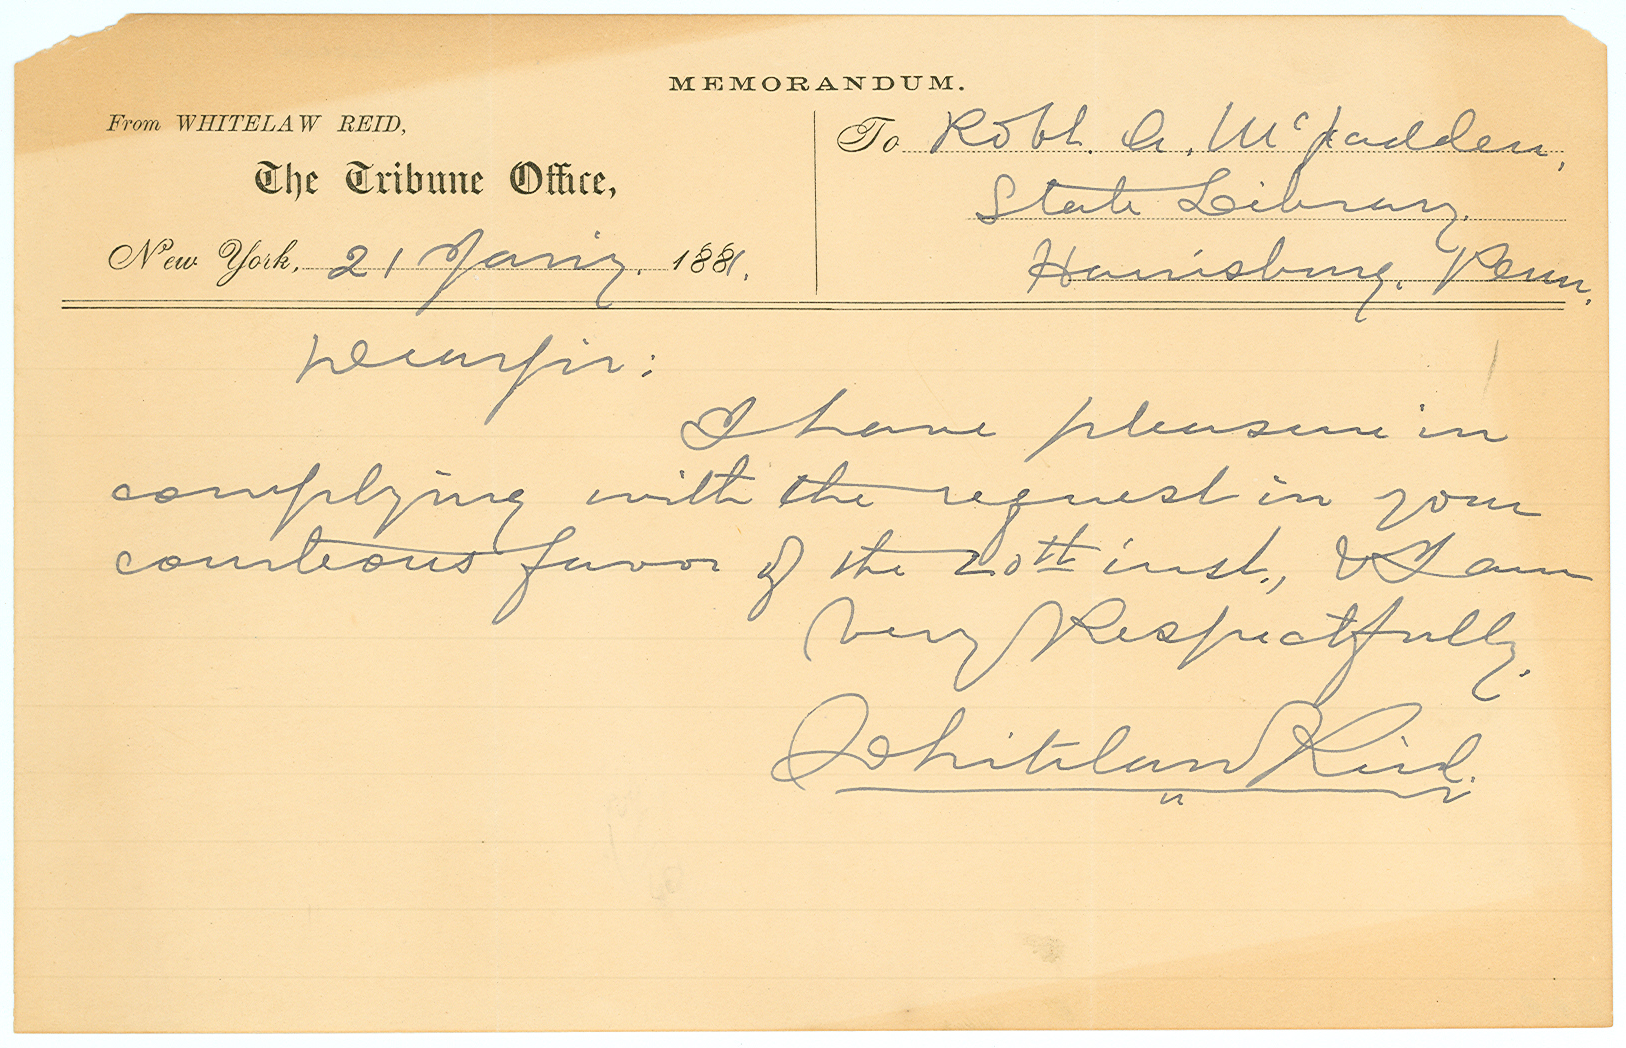 MEMORANDUM.
From WHITELAW REID,
The Tribune Office,
New York, 21 Jan'y. 1881.
To Robt. A. McFadden,
State Library,
Harrisburg, Penn.
Dear Sir:
I have pleasure in
complying with the request in your
courteous favor of the 20th inst., & I am
Very Respectfully,
Whitelaw Reid.